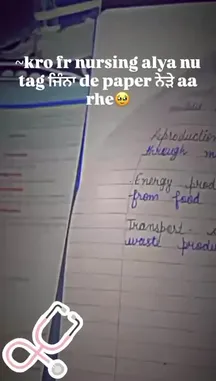 ~kro fr nursing alya nu
tag ਜਿੰਨਾ de paper ਨੇੜੇ aa
rhe🥹
through
Energy prod
from food
Transport
waste produ